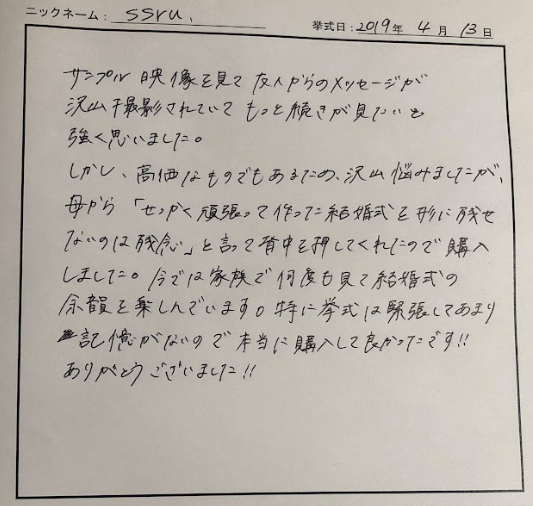 ニックネーム: ssru.
挙式日: 2019年 4月 13日
サンプル映像を見て友人からのメッセージが
沢山撮影されていてもっと続きが見たいと
強く思いました。
しかし、高価なものでもあるため、沢山悩みましたが、
母から「せっかく頑張って作った結婚式を形に残せ
ないのは残念」と言って背中を押してくれたので購入
しました。今では家族で何度も見て結婚式の
余韻を楽しんでいます。特に挙式は緊張してあまり
記憶がないので本当に購入して良かったです!!
ありがとうございました!!